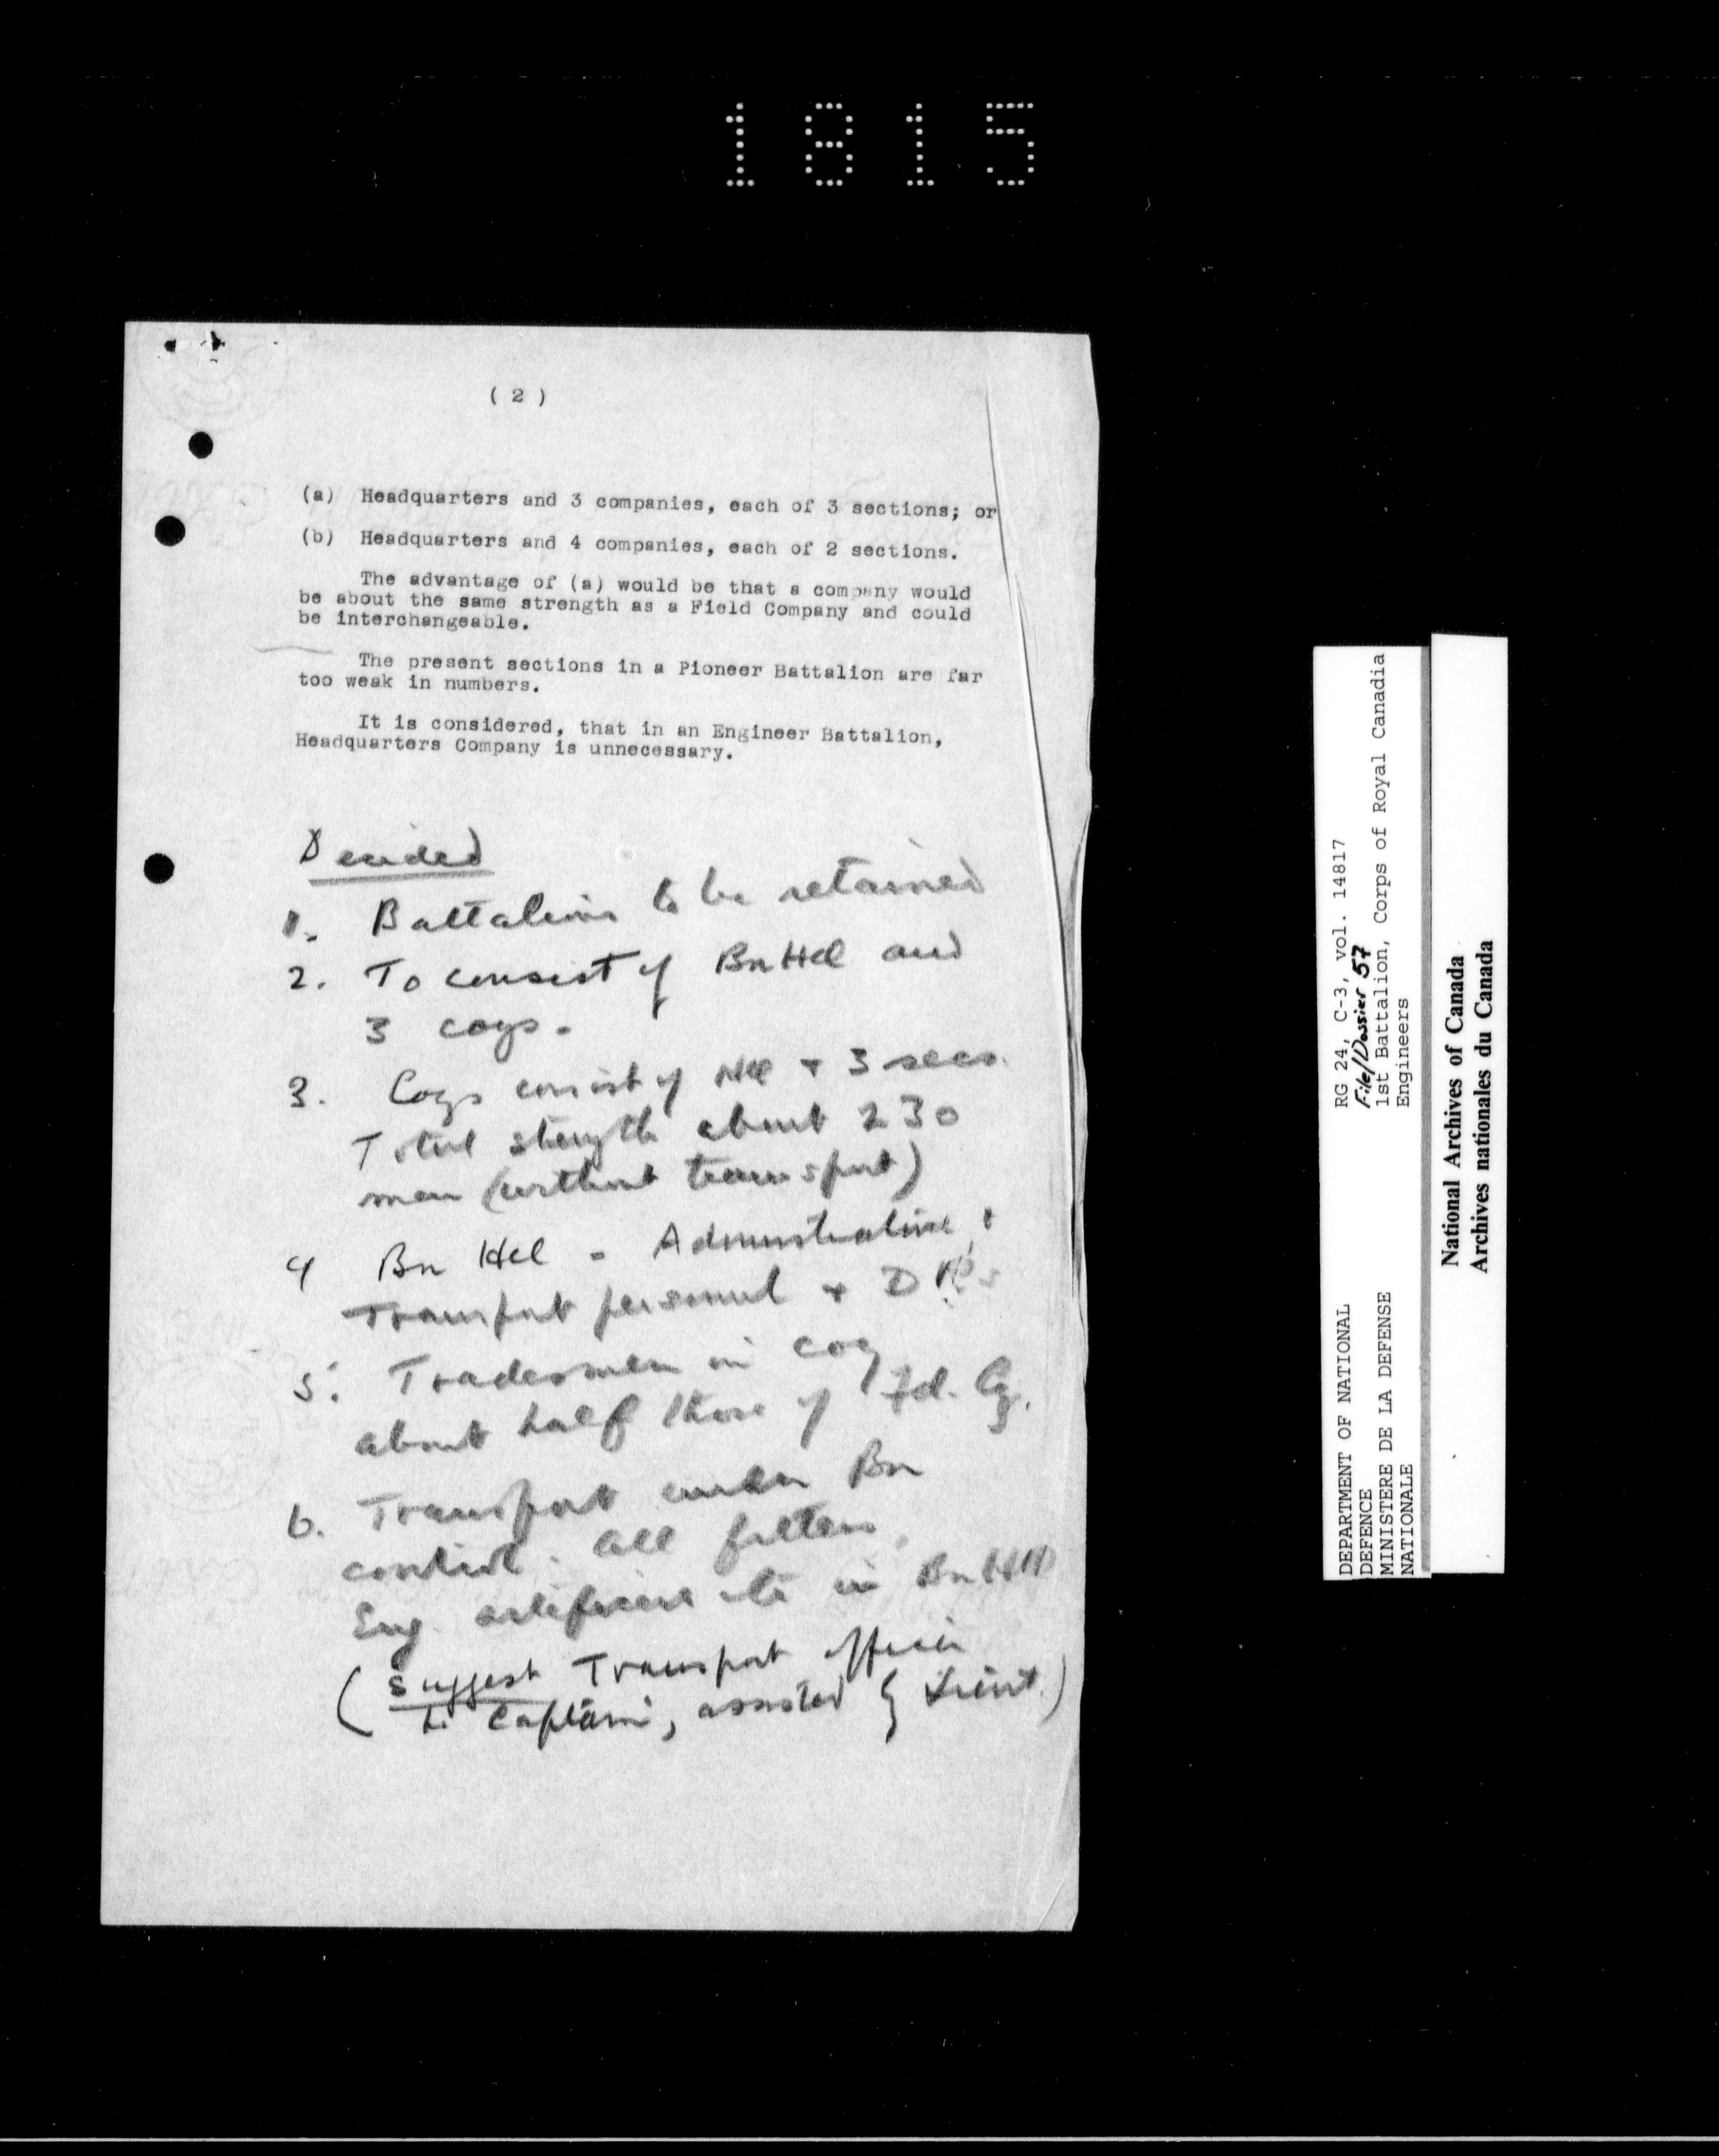 1815
( 2 )
(a) Headquarters and 3 companies, each of 3 sections; or
(b) Headquarters and 4 companies, each of 2 sections.
The advantage of (a) would be that a company would
be about the same strength as a Field Company and could
be interchangeable.
The present sections in a Pioneer Battalion are far
too weak in numbers.
It is considered, that in an Engineer Battalion,
Headquarters Company is unnecessary.
Decided
1. Battalion to be retained
2. To consist of Bn Hd and
3 coys.
3. Coys consist of Hd + 3 secs.
Total strength about 230
men (without transport)
4 Bn Hd = Administrative +
Transport personnel + D Rs
5. Tradesmen in coy
about half those of Fd. Cy.
6. Transport under Bn
control. All fitters,
Eng. artificers etc in Bn HQ
(Suggest Transport officer
be Captain, assisted by Lieut.)
RG 24, C-3, vol. 14817
File/Dossier 57
1st Battalion, Corps of Royal Canadia
Engineers
DEPARTMENT OF NATIONAL
DEFENCE
MINISTERE DE LA DEFENSE
NATIONALE
National Archives of Canada
Archives nationales du Canada